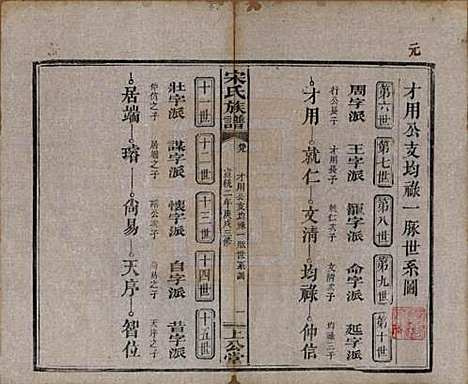 元
才用公支均祿一脉世系圖
第六世 第七世 第八世 第九世 第十世
周字派 王字派 寵字派 命字派 延字派
行公長子 才用長子 就仁次子 文清次子 均祿三子
才用 就仁 文清 均祿 仲信
宋氏族譜
卷
才用公支均祿一脉世系圖
宣統二年庚戌三修
一
上公堂
十一世 十二世 十三世 十四世 十五世
壯字派 謀字派 懷字派 自字派 昔字派
仲信之子 居端之子 瑢公次子 尚易之子 天序之子
居端 瑢 尚易 天序 智位